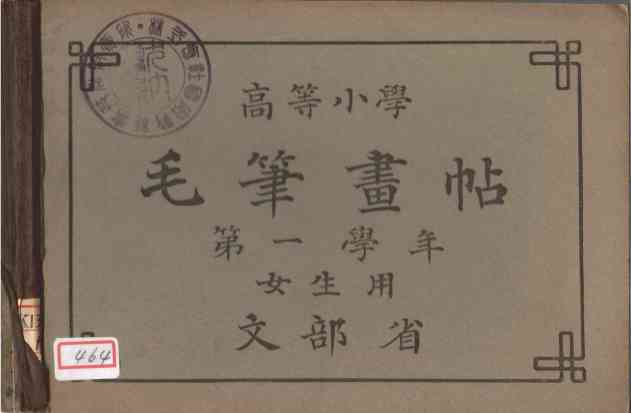 高等小學
毛筆畫帖
第一學年
女生用
文部省
K13
464